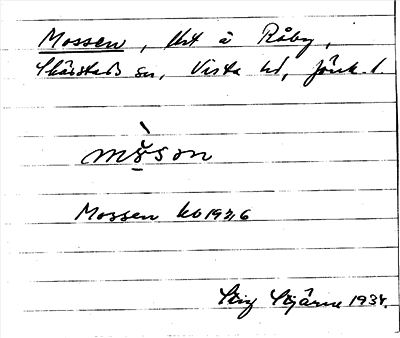 Mossen, Urt å Råby,
Skärstads sn, Vista hd, Jönk. l.
mòson
Mossen kb 1926
Stig Stjärne 1934.